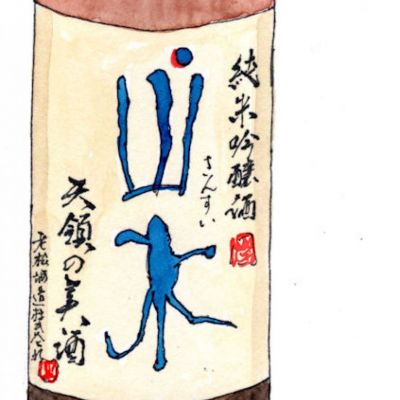 純米吟醸酒
さんすい
山水
天領の美酒
老松酒造株式会社